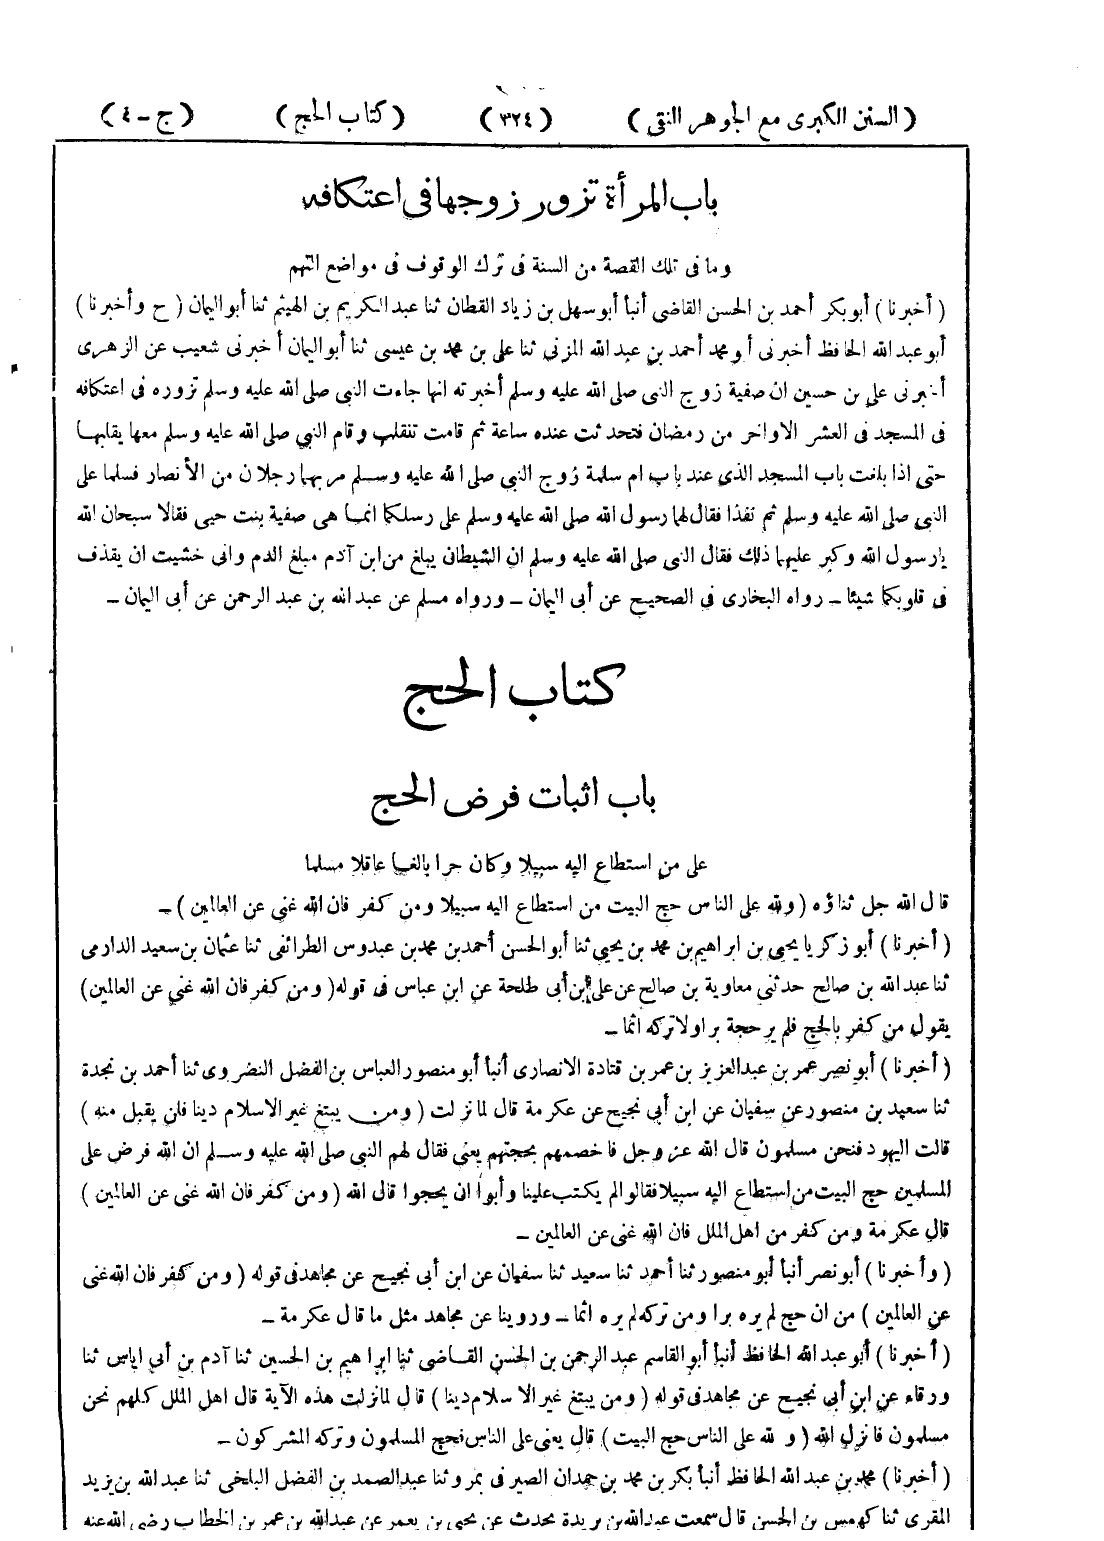 ( السنن الكبرى مع الجوهر النقى ) ( ٣٢٤ ) ( كتاب الحج ) ( ج – ٤ )
باب المرأة تزور زوجها فى اعتكافه
وما فى تلك القصة من السنة فى ترك الوقوف فى مواضع التهم
( أخبرنا ) أبو بكر أحمد بن الحسن القاضى أنبأ أبو سهل بن زياد القطان ثنا عبد الكريم بن الهيثم ثنا أبو اليمان ( ح وأخبرنا )
أبو عبد الله الحافظ أخبرنى أبو محمد أحمد بن عبد الله المزنى ثنا على بن محمد بن عيسى ثنا أبو اليمان أخبرنى شعيب عن الزهرى
أخبرنى على بن حسين ان صفية زوج النبى صلى الله عليه وسلم أخبرته انها جاءت النبى صلى الله عليه وسلم تزوره فى اعتكافه
فى المسجد فى العشر الاواخر من رمضان فتحدثت عنده ساعة ثم قامت تنقلب وقام النبى صلى الله عليه وسلم معها يقلبها
حتى اذا بلغت باب المسجد الذى عند باب ام سلمة زوج النبى صلى الله عليه وسلم مر بهما رجلان من الأنصار فسلما على
النبى صلى الله عليه وسلم ثم نفذا فقال لهما رسول الله صلى الله عليه وسلم على رسلكما انما هى صفية بنت حيى فقالا سبحان الله
يا رسول الله وكبر عليهما ذلك فقال النبى صلى الله عليه وسلم ان الشيطان يبلغ من ابن آدم مبلغ الدم وانى خشيت ان يقذف
فى قلوبكما شيئا – رواه البخارى فى الصحيح عن أبى اليمان – ورواه مسلم عن عبد الله بن عبد الرحمن عن أبى اليمان –
كتاب الحج
باب اثبات فرض الحج
على من استطاع اليه سبيلا وكان حرا بالغا عاقلا مسلما
قال الله جل ثناؤه ( ولله على الناس حج البيت من استطاع اليه سبيلا ومن كفر فان الله غنى عن العالمين ) –
( أخبرنا ) أبو زكريا يحيى بن ابراهيم بن محمد بن يحيى ثنا أبو الحسن أحمد بن محمد بن عبدوس الطرائفى ثنا عثمان بن سعيد الدارمى
ثنا عبد الله بن صالح حدثنى معاوية بن صالح عن على بن أبى طلحة عن ابن عباس فى قوله ( ومن كفر فان الله غنى عن العالمين )
يقول من كفر بالحج فلم ير حجة برا ولا تركه اثما –
( أخبرنا ) أبو نصر عمر بن عبد العزيز بن عمر بن قتادة الانصارى أنبأ أبو منصور العباس بن الفضل النضروى ثنا أحمد بن نجدة
ثنا سعيد بن منصور عن سفيان عن ابن أبى نجيح عن عكرمة قال لما نزلت ( ومن يبتغ غير الاسلام دينا فلن يقبل منه )
قالت اليهود فنحن مسلمون قال الله عز وجل فاخصمهم بحجتهم يعنى فقال لهم النبى صلى الله عليه وسلم ان الله فرض على
المسلمين حج البيت من استطاع اليه سبيلا فقالوا لم يكتب علينا وأبوا ان يحجوا قال الله ( ومن كفر فان الله غنى عن العالمين )
قال عكرمة ومن كفر من اهل الملل فان الله غنى عن العالمين –
( وأخبرنا ) أبو نصر أنبأ أبو منصور ثنا أحمد ثنا سعيد ثنا سفيان عن ابن أبى نجيح عن مجاهد فى قوله ( ومن كفر فان الله غنى
عن العالمين ) من ان حج لم يره برا ومن تركه لم يره اثما – وروينا عن مجاهد مثل ما قال عكرمة –
( أخبرنا ) أبو عبد الله الحافظ أنبأ أبو القاسم عبد الرحمن بن الحسن القاضى ثنا ابراهيم بن الحسين ثنا آدم بن أبى اياس ثنا
ورقاء عن ابن أبى نجيح عن مجاهد فى قوله ( ومن يبتغ غير الاسلام دينا ) قال لما نزلت هذه الآية قال اهل الملل كلهم نحن
مسلمون فانزل الله ( ولله على الناس حج البيت ) قال يعنى على الناس فحج المسلمون وتركه المشركون –
( أخبرنا ) محمد بن عبد الله الحافظ أنبأ بكر بن محمد بن حمدان الصيرفى بمرو ثنا عبد الصمد بن الفضل البلخى ثنا عبد الله بن يزيد
المقرى ثنا كهمس بن الحسن قال سمعت عبد الله بن بريدة يحدث عن يحيى بن يعمر عن عبد الله بن عمر بن الخطاب رضى الله عنه